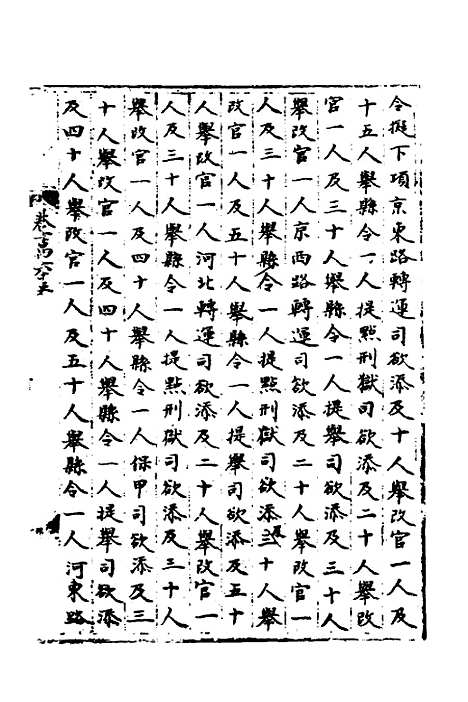 令擬下項京東路轉運司欲添及十人舉改官一人及
十五人舉縣令一人提點刑獄司欲添及二十人舉改
官一人及三十人舉縣令一人提舉司欲添及三十人
舉改官一人京西路轉運司欲添及二十人舉改官一
人及三十人舉縣令一人提點刑獄司欲添三十人舉
改官一人及五十人舉縣令一人提舉司欲添及五十
人舉改官一人河北轉運司欲添及二十人舉改官一
人及三十人舉縣令一人提點刑獄司欲添及三十人
舉改官一人及四十人舉縣令一人保甲司欲添及三
十人舉改官一人及四十人舉縣令一人提舉司欲添
及四十人舉改官一人及五十人舉縣令一人河東路